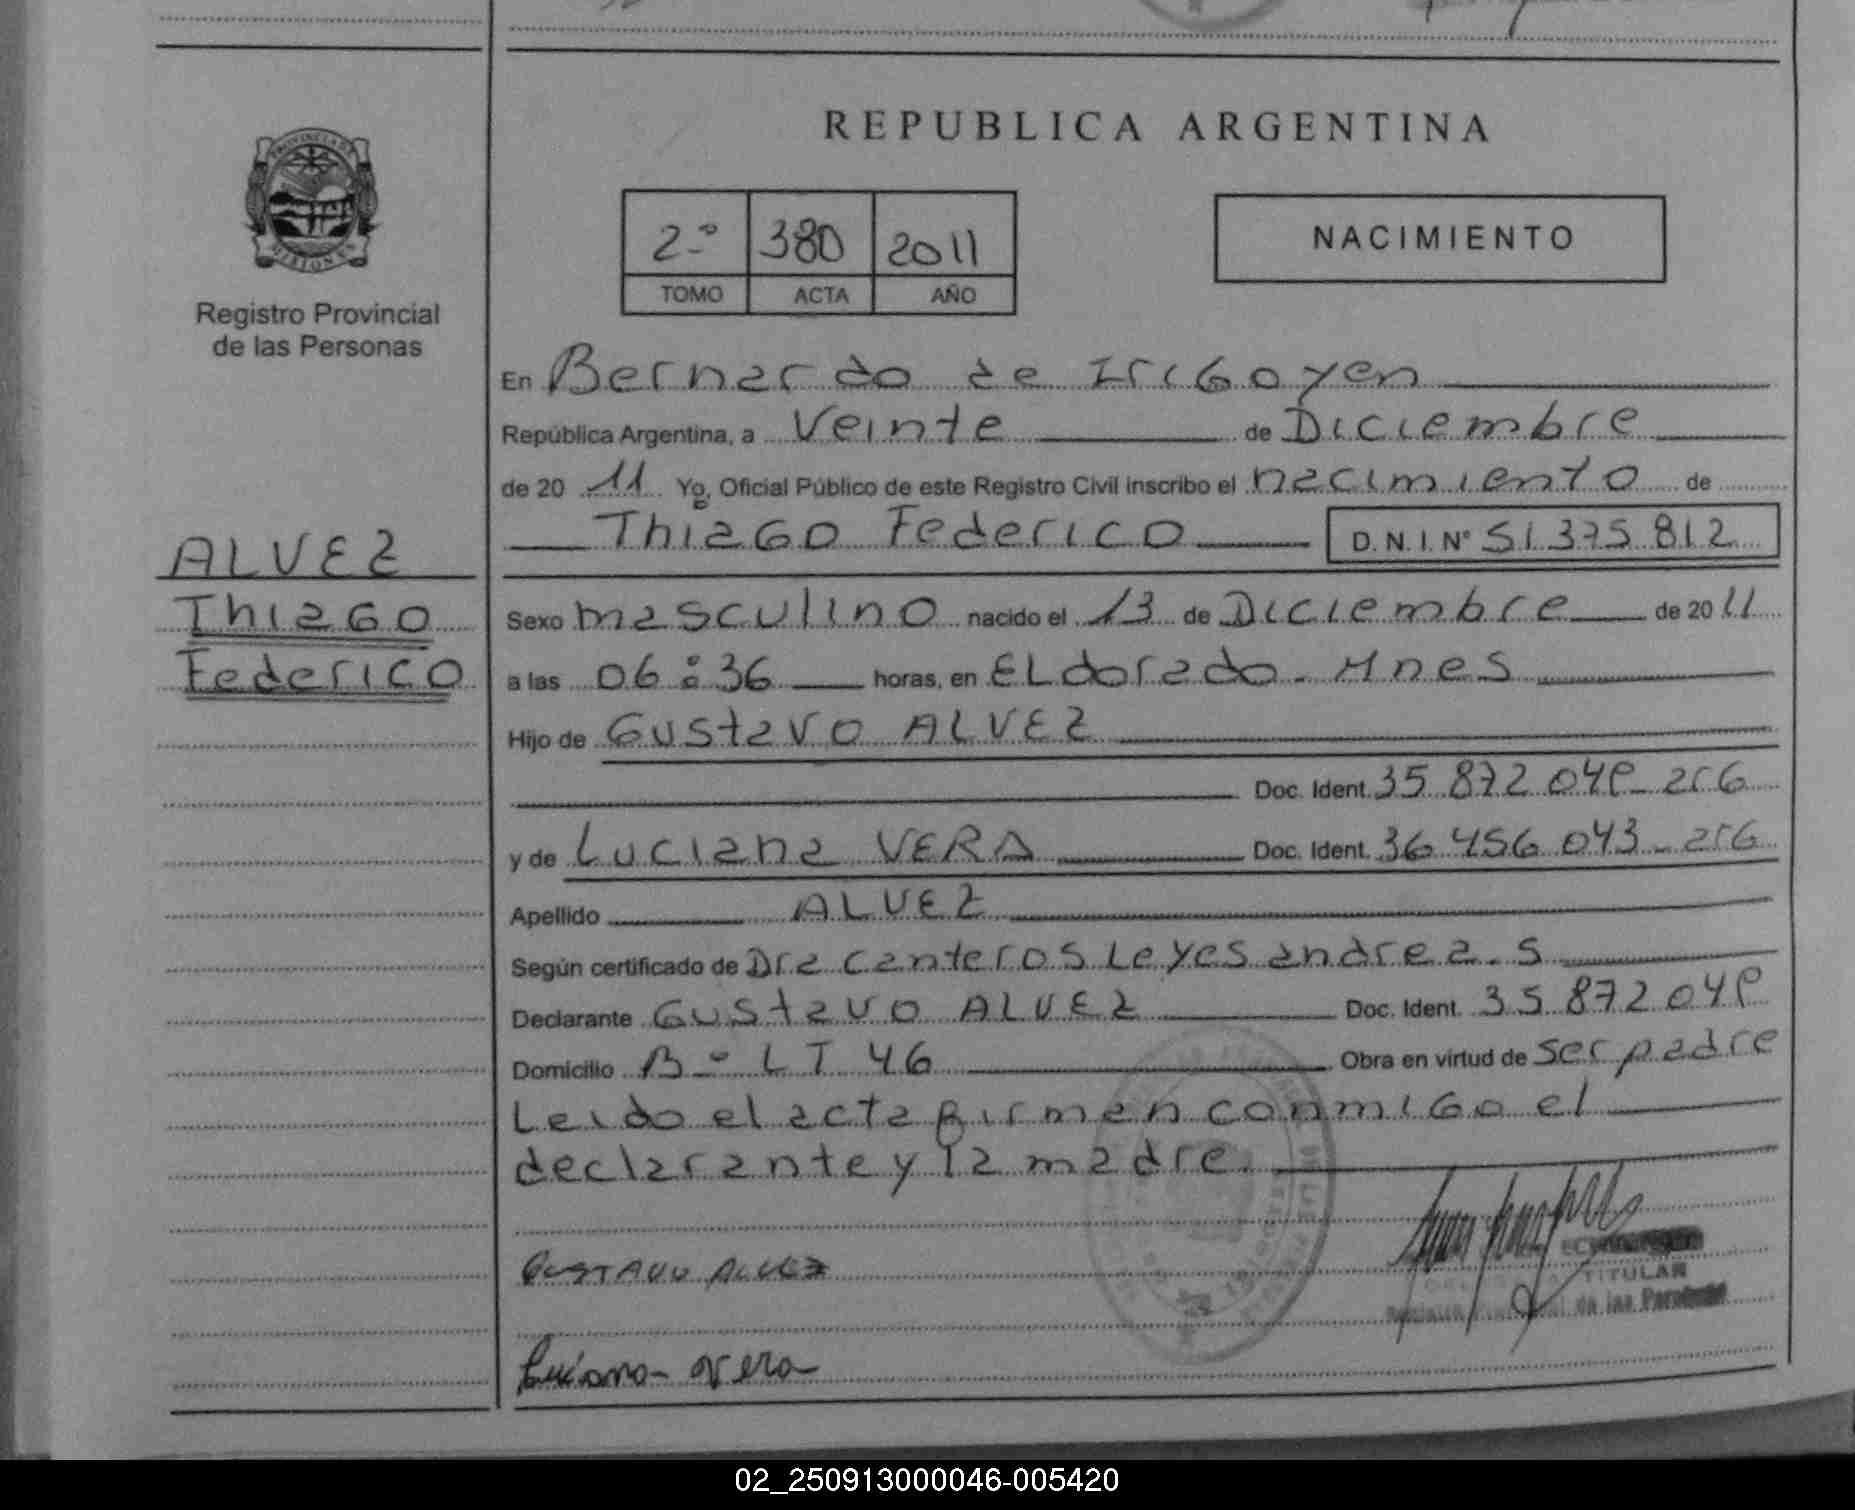 REPUBLICA ARGENTINA
PROVINCIA DE
MISIONES
Registro Provincial
de las Personas
2º 380 2011
TOMO ACTA AÑO
NACIMIENTO
En Bernardo de Irigoyen
República Argentina, a Veinte de Diciembre
de 20 11 Yo, Oficial Público de este Registro Civil inscribo el nacimiento de
Thiago Federico D.N.I. Nº 51.375.812
ALVEZ
Thiago
Federico
Sexo masculino nacido el 13 de Diciembre de 2011
a las 06:36 horas, en ELdorado - Mnes
Hijo de Gustavo ALVEZ
Doc. Ident. 35.872.049 - arg
y de Luciana VERA Doc. Ident. 36.456.043 - arg
Apellido ALVEZ
Según certificado de Dra canteros Leyes andrea. S
Declarante Gustavo ALVEZ Doc. Ident. 35.872.049
Domicilio Bº LT 46 Obra en virtud de ser padre
Leido el acta firman conmigo el
declarante y la madre.
GUSTAVO ALVEZ
TITULAR
de las Personas
Luciana Vera
02_250913000046-005420